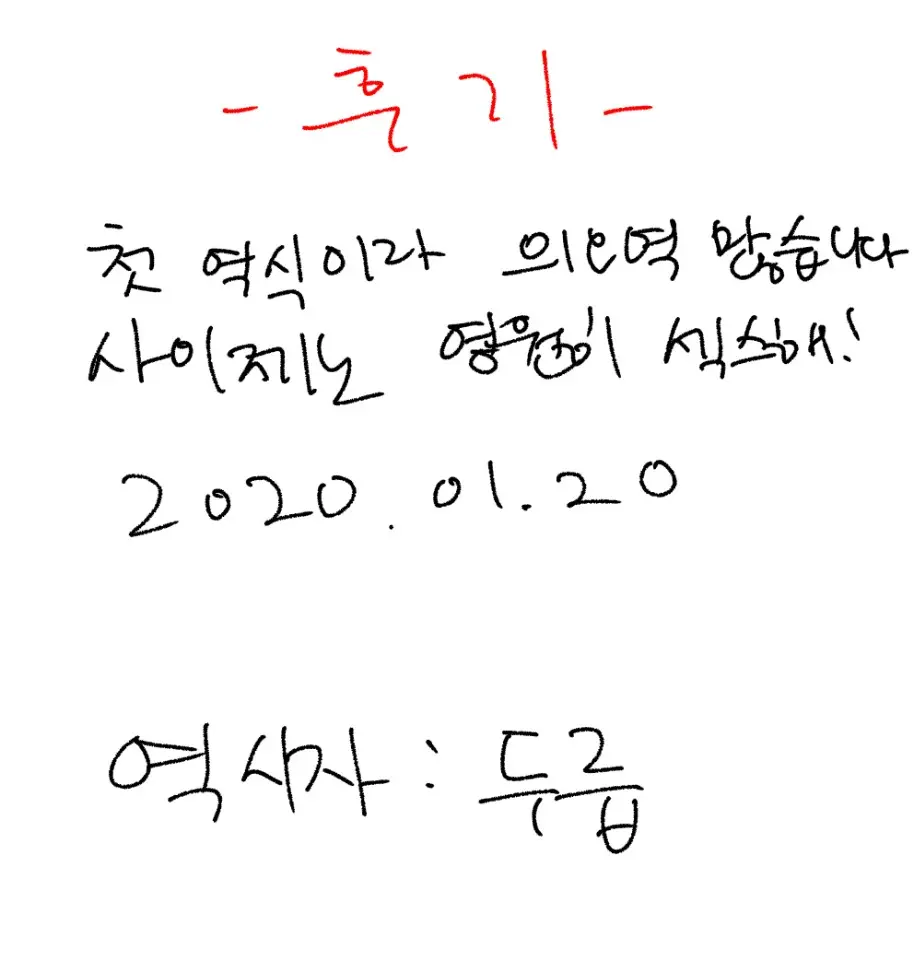 -후기-
첫 역식이라 의인역 많습니다
사이제노 영원히 섹스해!
2020.01.20
역사자 : 두릅